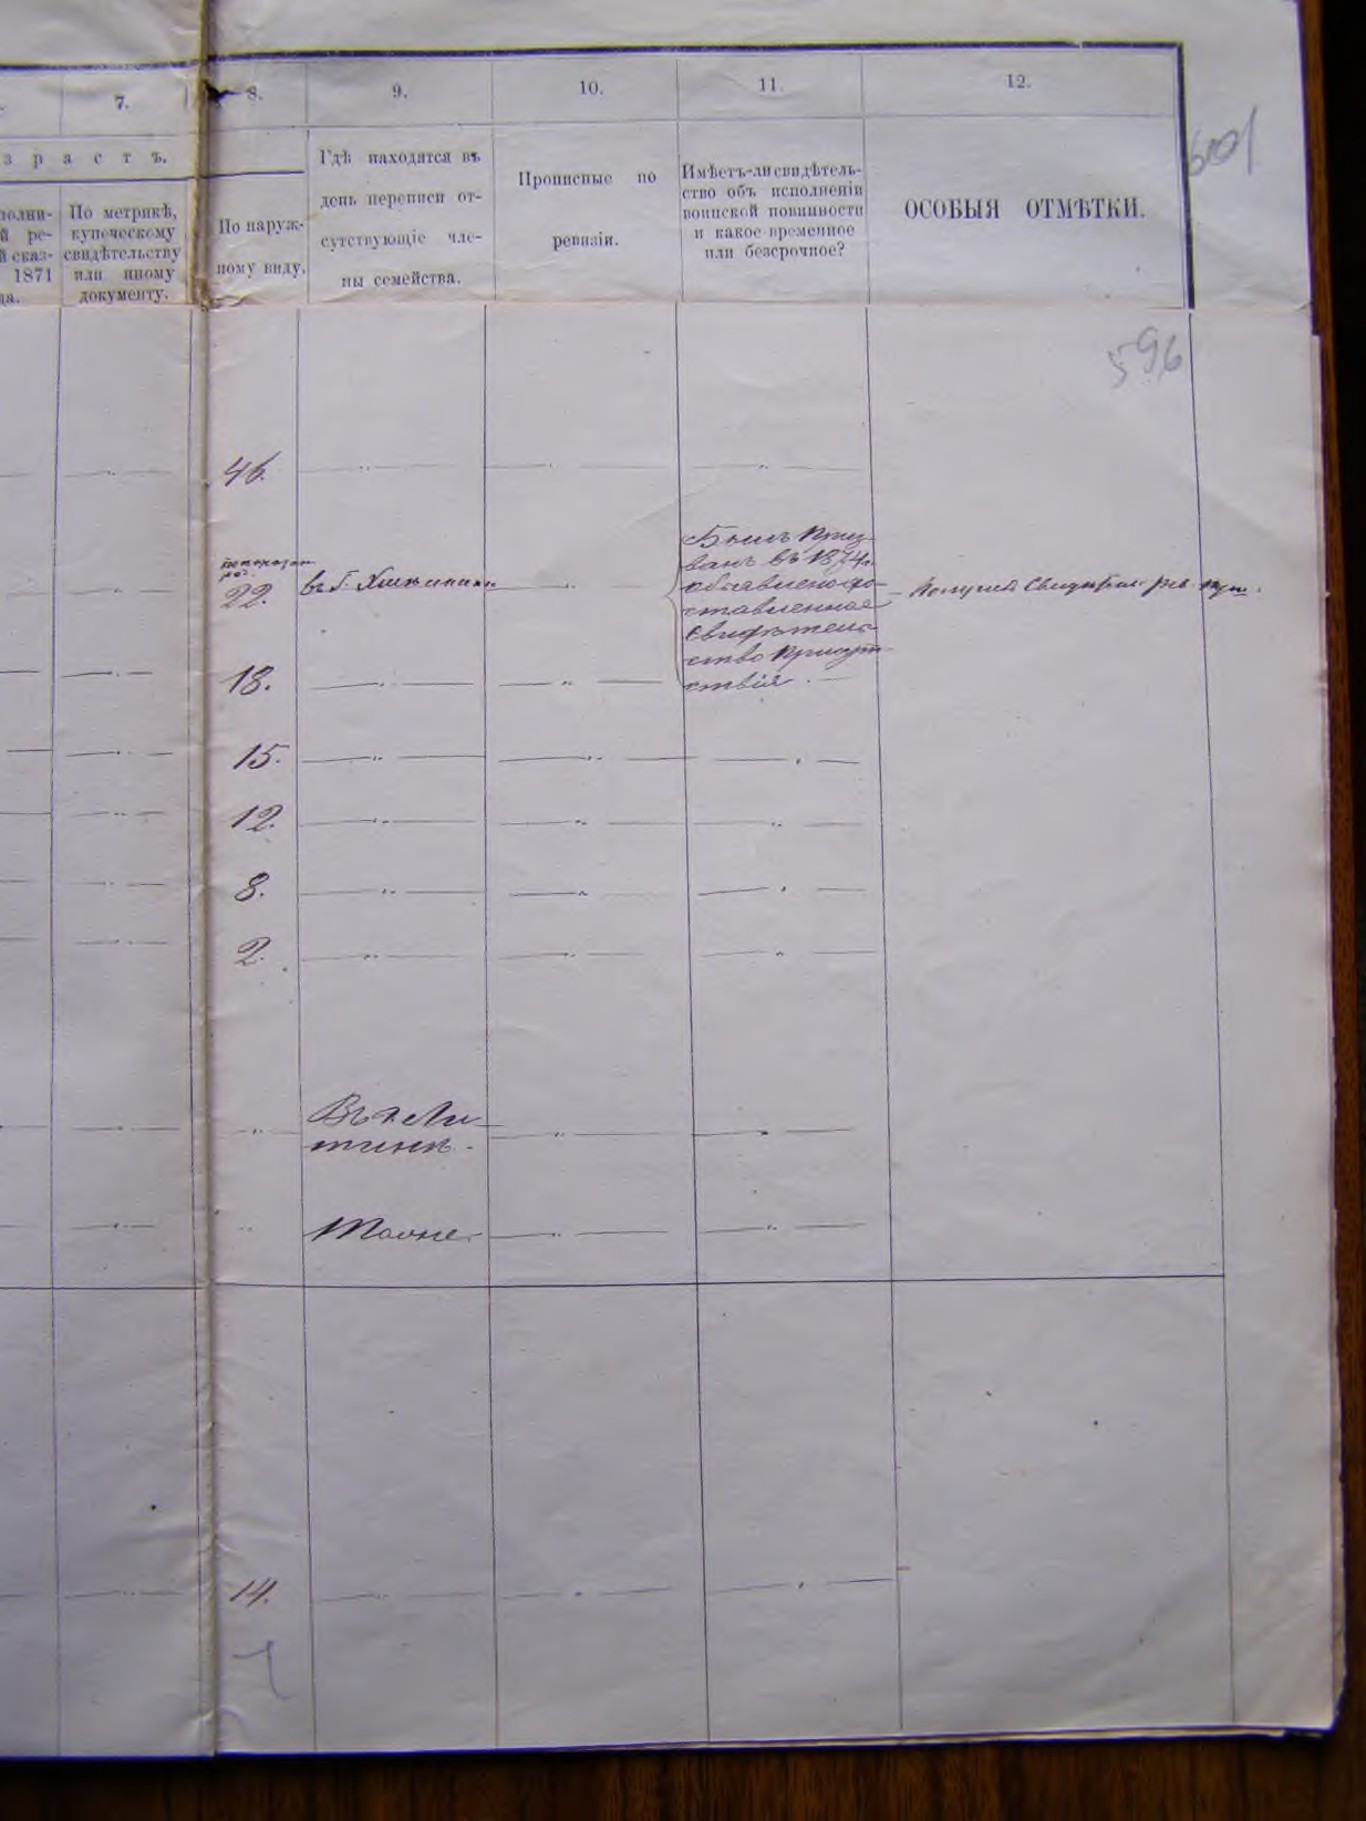 7.
8.
9.
10.
11.
12.
зрастъ.
полни-
й ре-
й сказ-
1871
да.
По метрикѣ,
купеческому
свидѣтельству
или иному
документу.
По наруж-
ному виду.
Гдѣ находятся въ
день переписи от-
сутствующіе чле-
ны семейства.
Прописные по
ревизіи.
Имѣетъ-ли свидѣтель-
ство объ исполненіи
воинской повинности
и какое-временное
или безсрочное?
ОСОБЫЯ ОТМѢТКИ.
601
596
46.
22.
въ г. Хмѣльникѣ
Былъ Приз-
ванъ въ 1874 г.
объявлено до-
ставленное
Свидѣтель-
ство Присут-
ствія.
18.
15.
12.
8.
2.
Въ г. Ли-
тинѣ.
Тоже.
14.